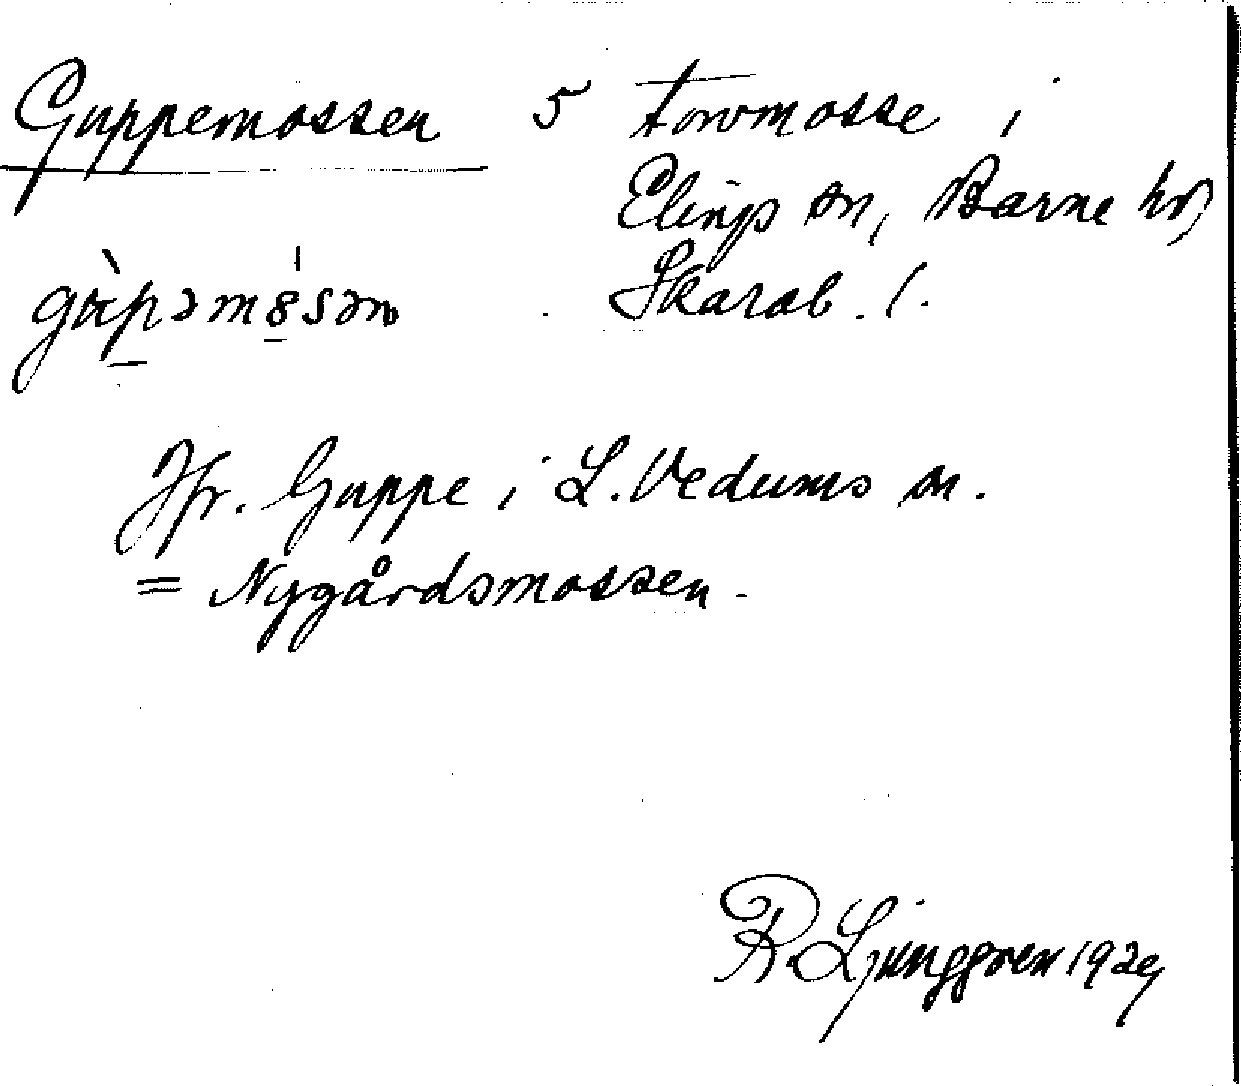 Guppemossen 5 torvmosse i
Elings sn, Barne hd,
Skarab. l.
Jfr. Guppe i L. Vedums sn.
= Nygårdsmossen.
R. Ljunggren 1929